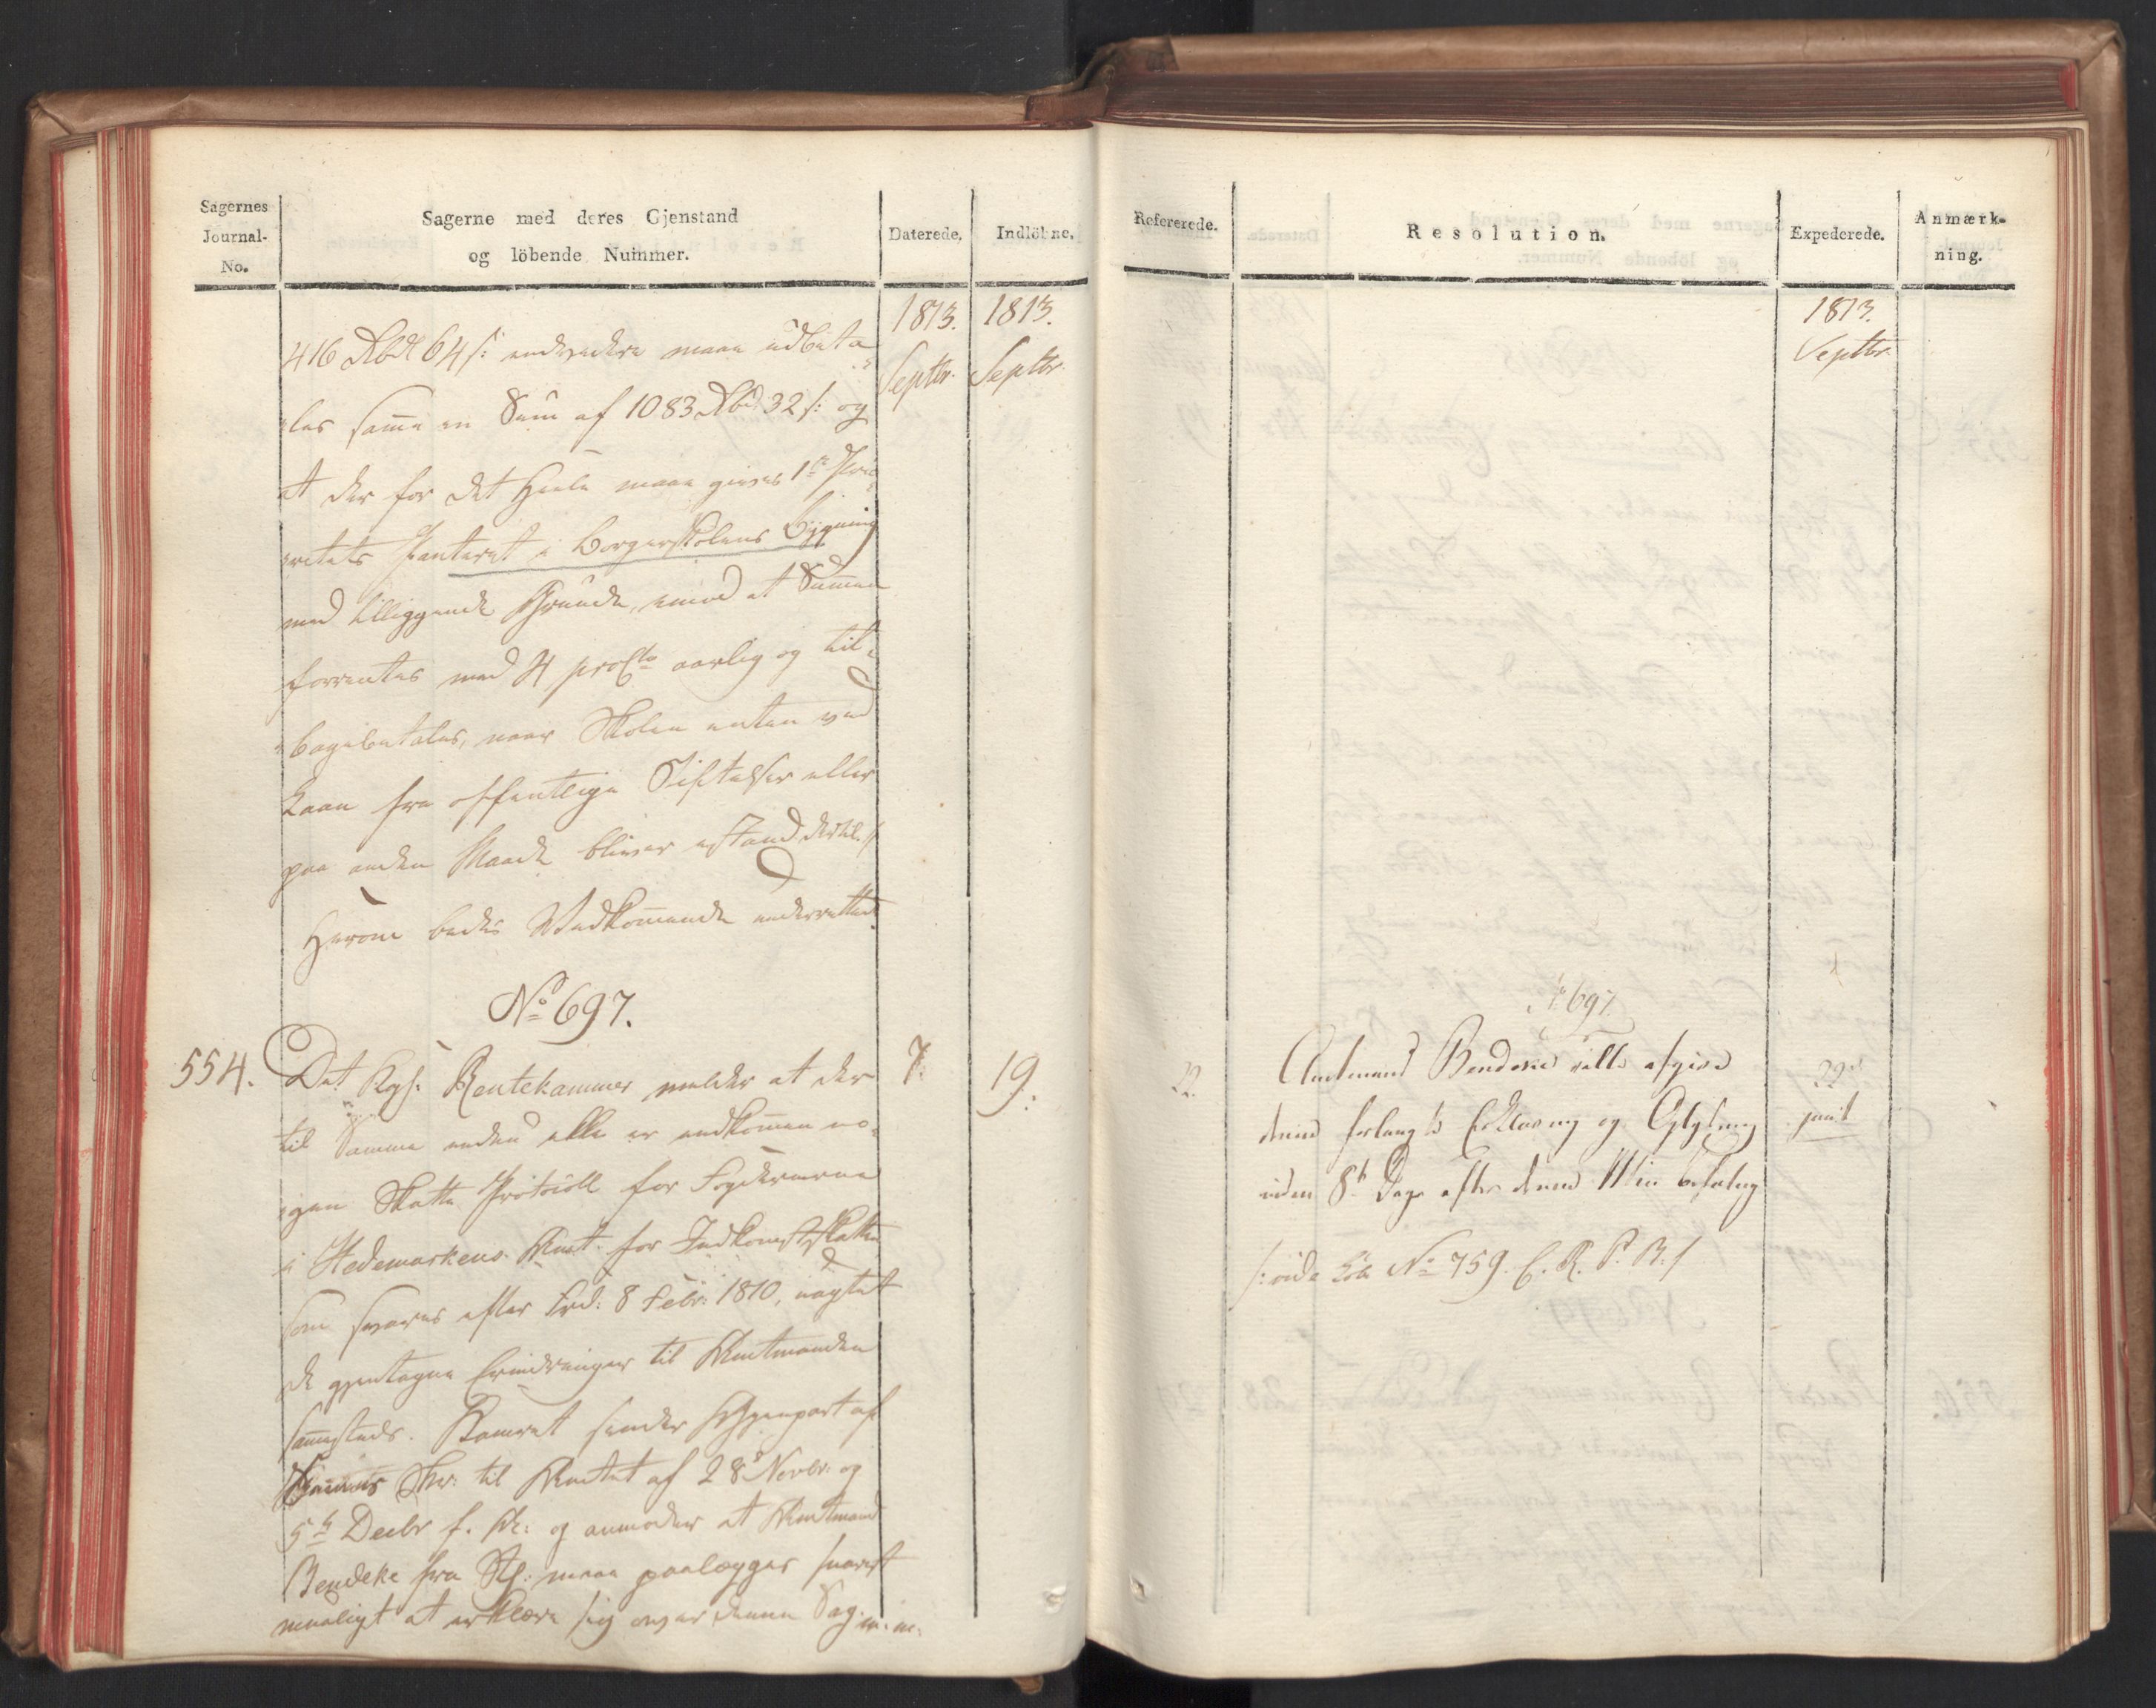 Sagernes
Journal-
No.
Sagerne med deres Gjenstand
og löbende Nummer.
Daterede.
Indlöbne.
1813.
1813.
Septbr.
Septbr.
416 Rbd 64 s: endvidere maae udbeta-
-les samme en Sum af 1083 Rbd 32 s: og
at der for det Heele maae gives 1ste Prio-
-ritets Panteret i Borgerskolens Bygning
med tilliggende Grunde, imod at Summen
forrentes med 4 proCto aarlig og til-
-bagebetales, naar Skolen enten ved
Laan fra offentlige Stiftelser eller
paa anden Maade bliver istand dertil./
Herom bedes Vedkommende underrettet.
No 697.
554.
Det Kgl. Rentekammer melder at der
7.
19.
til Samme endnu ikke er indkommen no-
-gen Skatte Protocoll for Fogderierne
i Hedemarkens Amt for Indkomstskatten
som svares efter Frd: 8 Febr: 1810, uagtet
de gjentagne Erindringer til Amtmanden
sammesteds. Kamret sender Gjenpart af
Sammes Skr: til Amtet af 28 Novbr: og
5te Decbr f. A: og anmoder at Amtmand
Bendeke fra St: maae paalægges snarest
mueligt at erklære sig over denne Sag m. m.
Refererede.
Resolution.
Expederede.
Anmærk-
ning.
1813.
Septbr.
No 697
22.
Amtmand Bendeke vilde afgive
22de
denne forlangte Erklæring og Oplysning
inden 8te Dage efter denne Min befaling
/: vide Löb. No 759. C. R. P. B. /